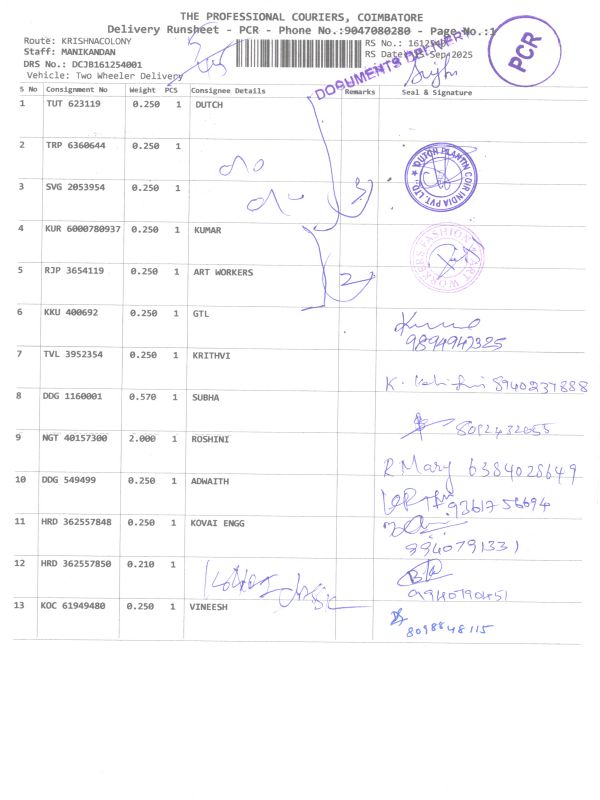 THE PROFESSIONAL COURIERS, COIMBATORE
Delivery Runsheet - PCR - Phone No.:9047080280 - Page No.:1
Route: KRISHNACOLONY
RS No.: 1612540
Staff: MANIKANDAN
RS Date: Sep-2025
DRS No.: DCJB161254001
Vehicle: Two Wheeler Delivery
DOCUMENTS DELIVERY
PCR
S No Consignment No Weight PCS Consignee Details Remarks Seal & Signature
1 TUT 623119 0.250 1 DUTCH
2 TRP 6360644 0.250 1
DUTCH PLANTIN COIR INDIA PVT. LTD.
3 SVG 2053954 0.250 1 3
4 KUR 6000780937 0.250 1 KUMAR
ART WORKERS FASHION
5 RJP 3654119 0.250 1 ART WORKERS 2
6 KKU 400692 0.250 1 GTL
9894947325
7 TVL 3952354 0.250 1 KRITHVI
K. 8940237888
8 DDG 1160001 0.570 1 SUBHA
8012432055
9 NGT 40157300 2.000 1 ROSHINI
R Mary 6384028649
10 DDG 549499 0.250 1 ADWAITH
9361756694
11 HRD 362557848 0.250 1 KOVAI ENGG
8940791331
12 HRD 362557850 0.210 1
9940790451
13 KOC 61949480 0.250 1 VINEESH
8098848115